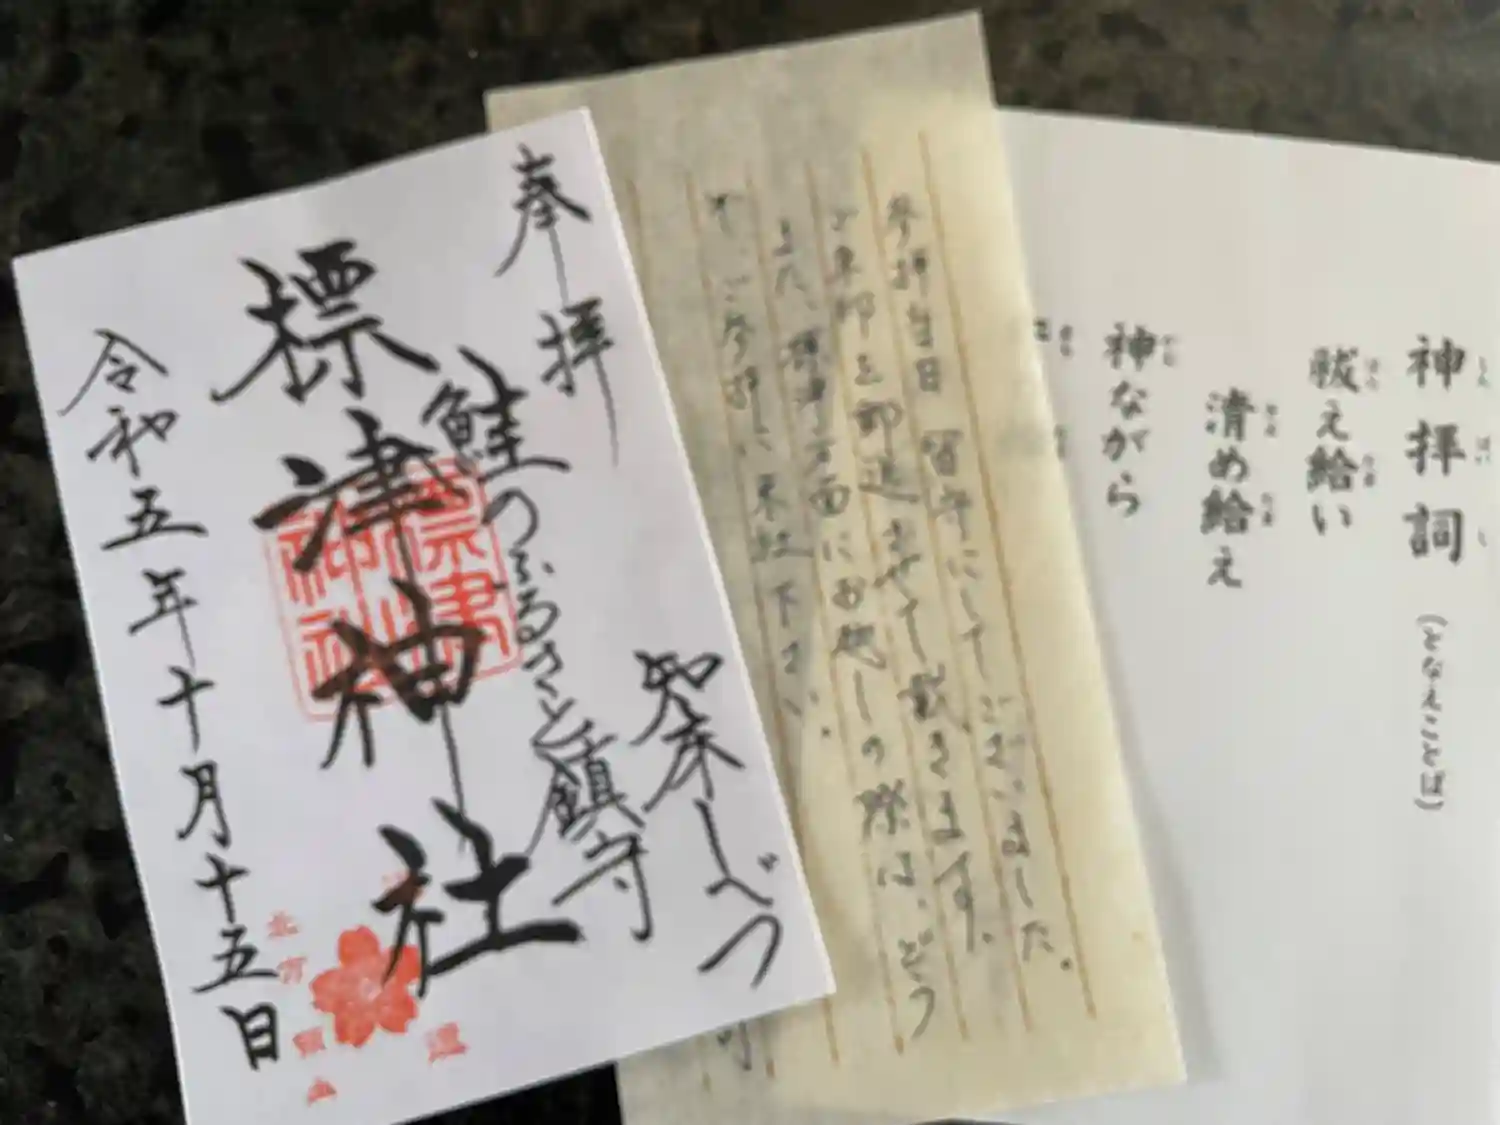 奉拝
知床しべつ
鮭のふるさと鎮守
標津神社
令和五年十月十五日
標津
神社
参拝当日留守にしてございました。
ご朱印を郵送させて戴きます。
また、標津方面にお越しの際は、どう
ぞ、ご参拝に来社下さい。
神拝詞 (となえことば)
しんぱいし
祓え給い
はら たま
清め給え
きよ たま
神ながら
かむ